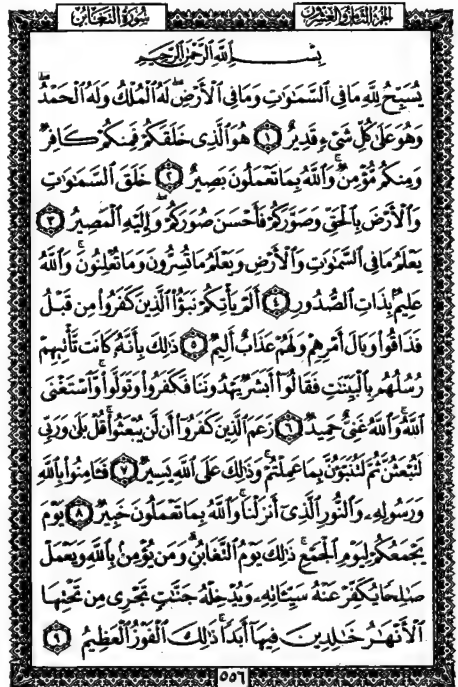 الجزء الثامن والعشرون
سورة التغابن
بِسْمِ ٱللَّهِ ٱلرَّحْمَٰنِ ٱلرَّحِيمِ
يُسَبِّحُ لِلَّهِ مَا فِي ٱلسَّمَٰوَٰتِ وَمَا فِي ٱلْأَرْضِۖ لَهُ ٱلْمُلْكُ وَلَهُ ٱلْحَمْدُۖ
وَهُوَ عَلَىٰ كُلِّ شَىْءٍ قَدِيرٌ ١ هُوَ ٱلَّذِى خَلَقَكُمْ فَمِنكُمْ كَافِرٌ
وَمِنكُم مُّؤْمِنٌۚ وَٱللَّهُ بِمَا تَعْمَلُونَ بَصِيرٌ ٢ خَلَقَ ٱلسَّمَٰوَٰتِ
وَٱلْأَرْضَ بِٱلْحَقِّ وَصَوَّرَكُمْ فَأَحْسَنَ صُوَرَكُمْۖ وَإِلَيْهِ ٱلْمَصِيرُ ٣
يَعْلَمُ مَا فِي ٱلسَّمَٰوَٰتِ وَٱلْأَرْضِ وَيَعْلَمُ مَا تُسِرُّونَ وَمَا تُعْلِنُونَۚ وَٱللَّهُ
عَلِيمٌۢ بِذَاتِ ٱلصُّدُورِ ٤ أَلَمْ يَأْتِكُمْ نَبَؤُا۟ ٱلَّذِينَ كَفَرُوا۟ مِن قَبْلُ
فَذَاقُوا۟ وَبَالَ أَمْرِهِمْ وَلَهُمْ عَذَابٌ أَلِيمٌ ٥ ذَٰلِكَ بِأَنَّهُۥ كَانَت تَّأْتِيهِمْ
رُسُلُهُم بِٱلْبَيِّنَٰتِ فَقَالُوٓا۟ أَبَشَرٌ يَهْدُونَنَا فَكَفَرُوا۟ وَتَوَلَّوا۟ۚ وَّٱسْتَغْنَى
ٱللَّهُۚ وَٱللَّهُ غَنِىٌّ حَمِيدٌ ٦ زَعَمَ ٱلَّذِينَ كَفَرُوٓا۟ أَن لَّن يُبْعَثُوا۟ۚ قُلْ بَلَىٰ وَرَبِّى
لَتُبْعَثُنَّ ثُمَّ لَتُنَبَّؤُنَّ بِمَا عَمِلْتُمْۚ وَذَٰلِكَ عَلَى ٱللَّهِ يَسِيرٌ ٧ فَـَٔامِنُوا۟ بِٱللَّهِ
وَرَسُولِهِۦ وَٱلنُّورِ ٱلَّذِىٓ أَنزَلْنَاۚ وَٱللَّهُ بِمَا تَعْمَلُونَ خَبِيرٌ ٨ يَوْمَ
يَجْمَعُكُمْ لِيَوْمِ ٱلْجَمْعِۖ ذَٰلِكَ يَوْمُ ٱلتَّغَابُنِۗ وَمَن يُؤْمِنۢ بِٱللَّهِ وَيَعْمَلْ
صَٰلِحًا يُكَفِّرْ عَنْهُ سَيِّـَٔاتِهِۦ وَيُدْخِلْهُ جَنَّٰتٍ تَجْرِى مِن تَحْتِهَا
ٱلْأَنْهَٰرُ خَٰلِدِينَ فِيهَآ أَبَدًاۚ ذَٰلِكَ ٱلْفَوْزُ ٱلْعَظِيمُ ٩
٥٥٦